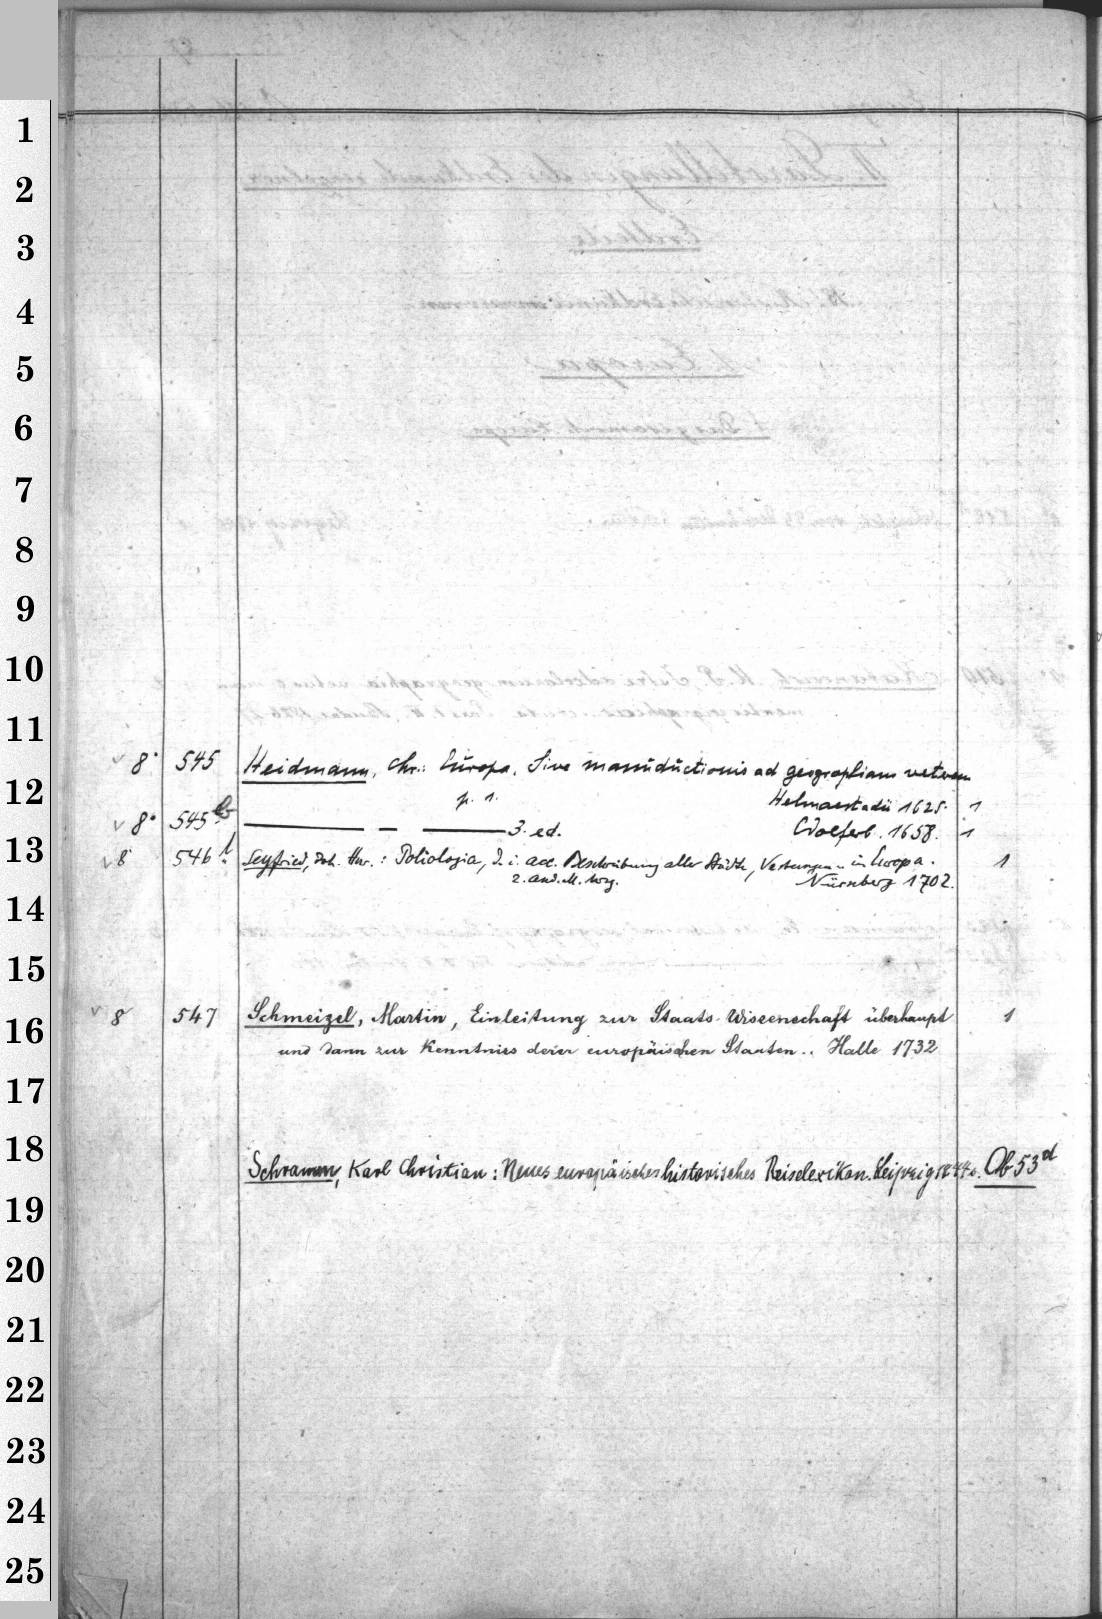 1
2
3
4
5
6
7
8
9
10
11
v 8° 545 Heidmann, Chr.: Europa. Sive manuductionis ad geographiam veterem
12 p. 1. Helmaestadii 1625. 1
v 8° 545 b — — — 3. ed. Wolferb. 1658. 1
13 v 8 546 Seyfried, Joh. Hnr.: Poliologia, d. i. acc. Beschreibung aller Städte, Vestungen .. in Europa. 1
2. and. Nürnberg 1702.
14
15
v 8° 547 Schmeizel, Martin, Einleitung zur Staats-Wissenschaft überhaupt 1
16
und dann zur Kenntniss derer europäischen Staaten .. Halle 1732
17
18 Schramm, Karl Christian: Neues europäisches historisches Reiselexikon. Leipzig Ob 53 d
19
20
21
22
23
24
25